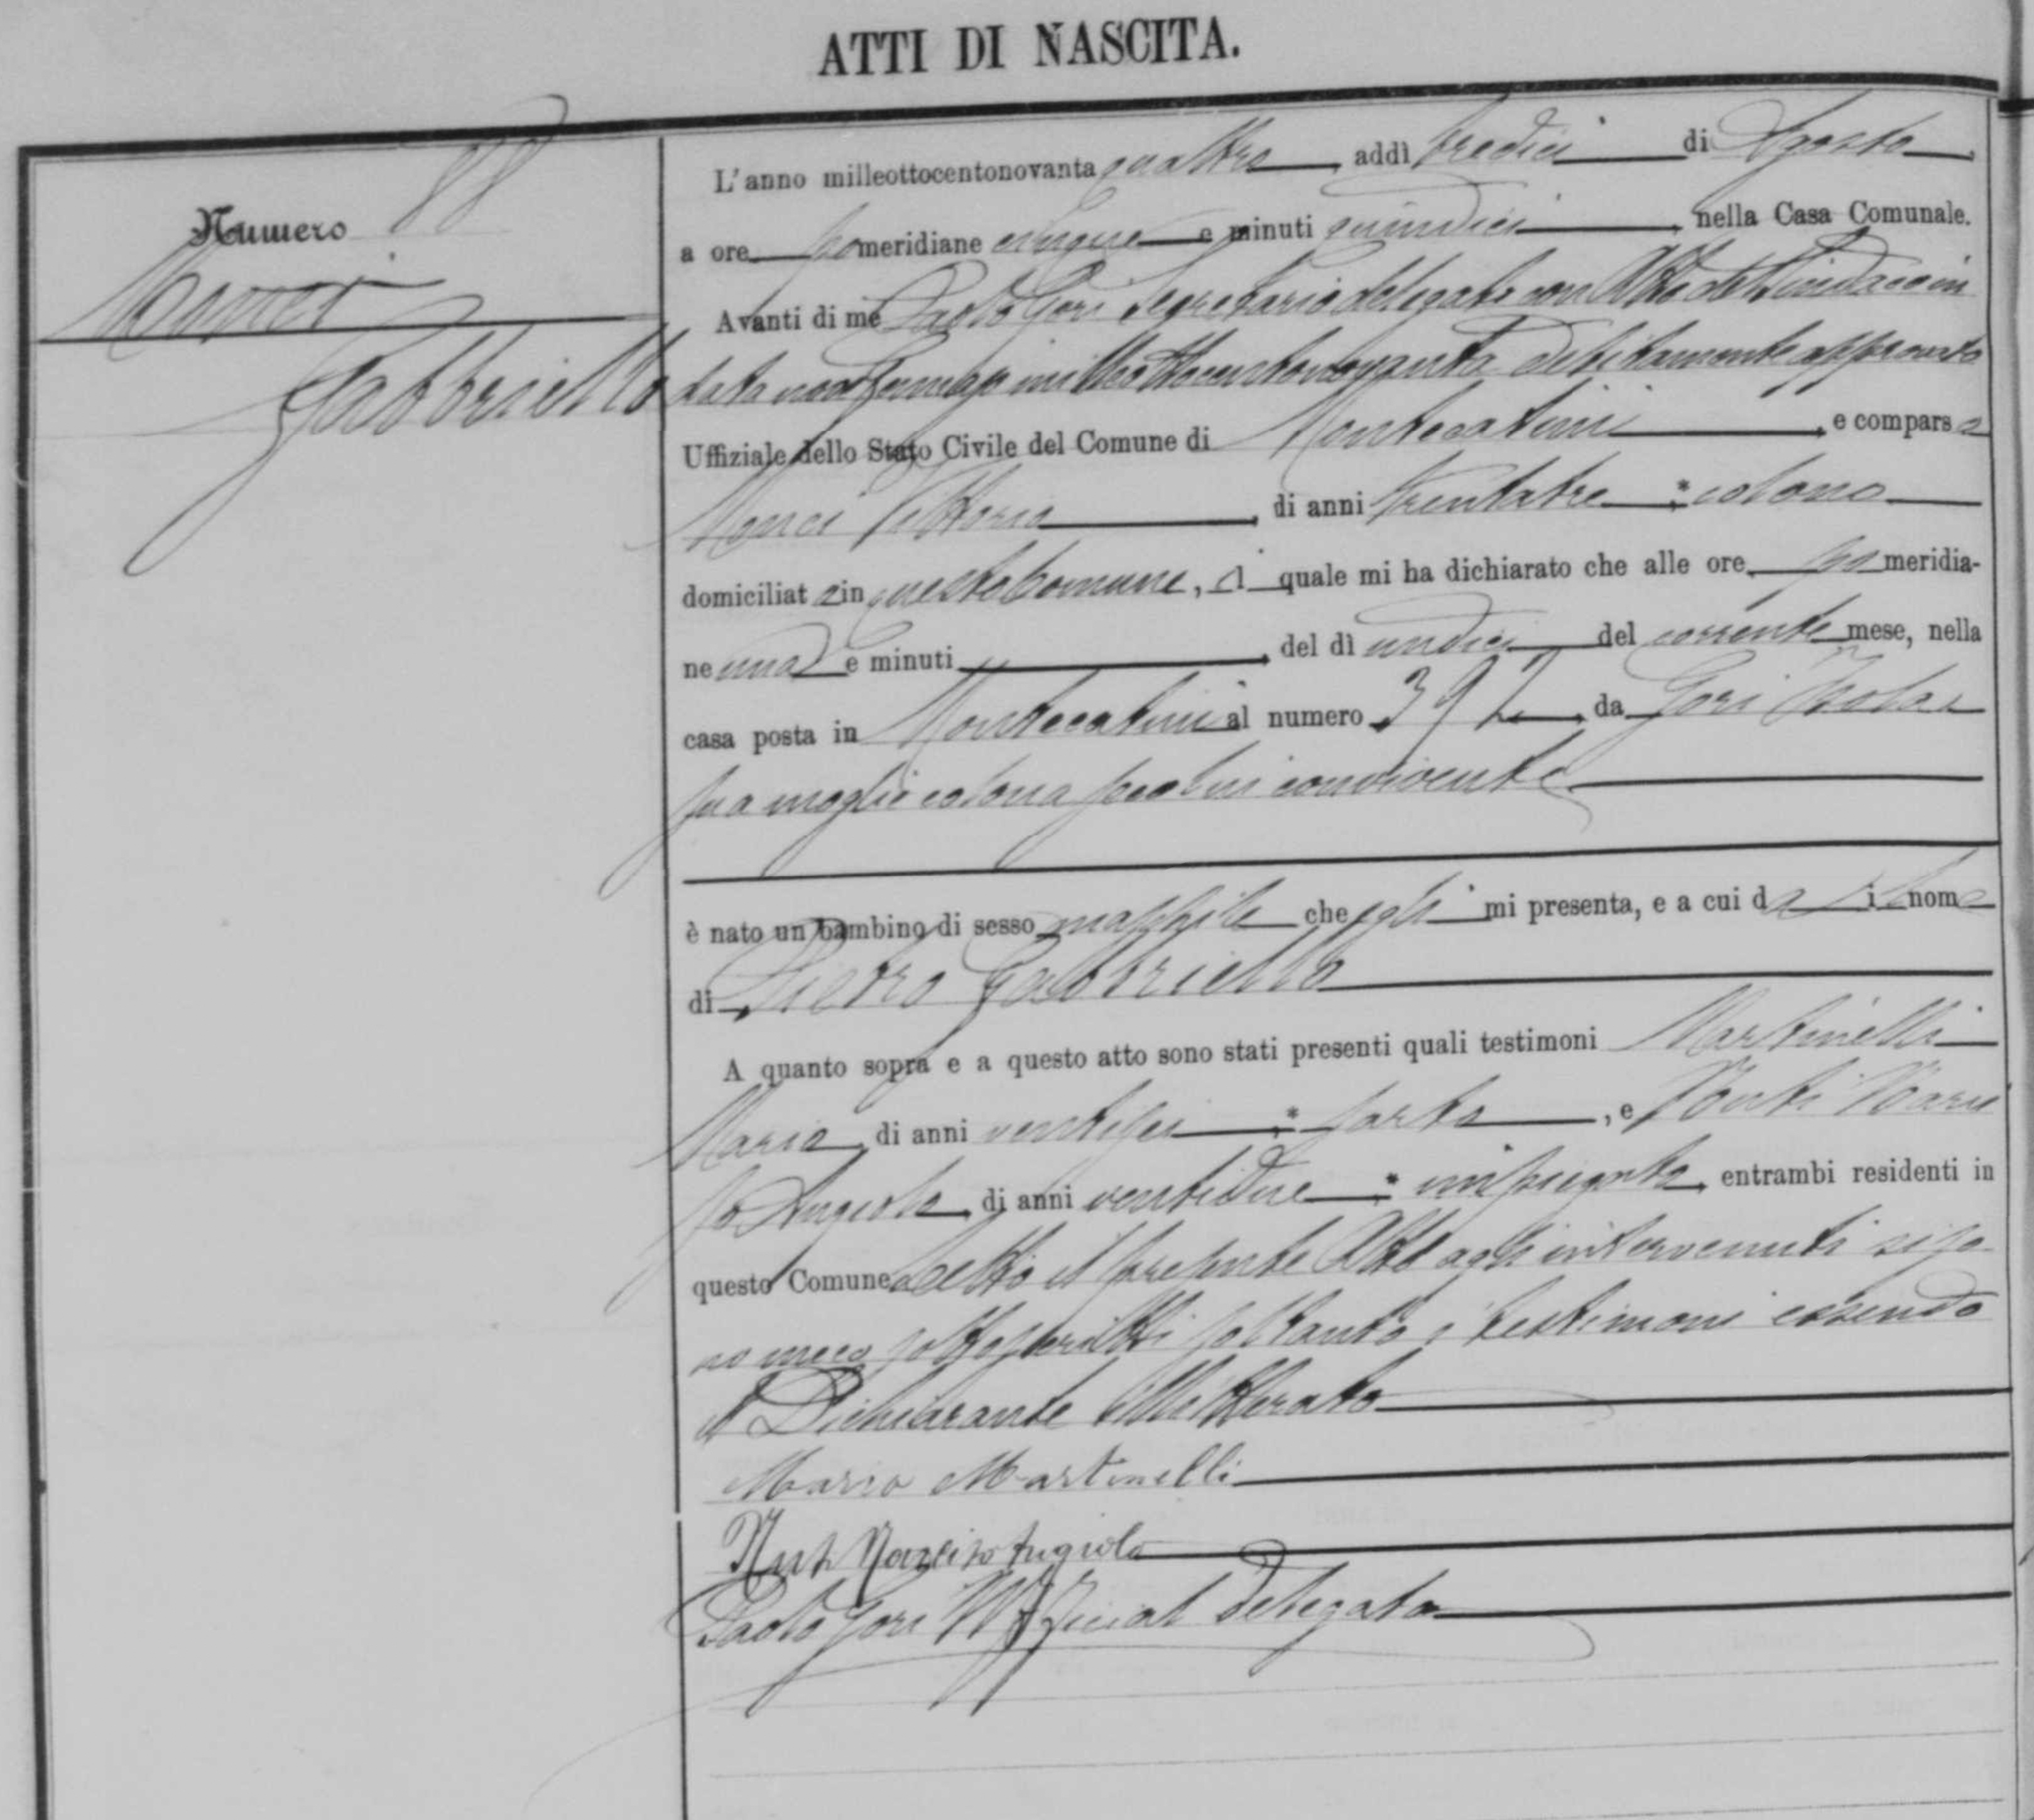 ATTI DI NASCITA.
Numero 88
Gabbriello
L'anno milleottocentonovanta quattro, addì tredici di Agosto,
a ore pomeridiane cinque e minuti quindici, nella Casa Comunale.
Avanti di me Paolo Gori Segretario delegato con Atto del Sindaco in
data milleottocentonovanta debitamente approvato
Uffiziale dello Stato Civile del Comune di Montecatini, e comparso
Vittorio, di anni trentatre; colono
domiciliato in questo Comune, il quale mi ha dichiarato che alle ore pomeridia-
ne una e minuti, del dì undici del corrente mese, nella
casa posta in Montecatini al numero 392, da Gori Isola
sua moglie colona seco lui convivente
è nato un bambino di sesso maschile che egli mi presenta, e a cui dà il nome
di Pietro Gabbriello
A quanto sopra e a questo atto sono stati presenti quali testimoni Martinelli
Mario, di anni ventisei; sarto, e Narci
so Angiolo, di anni ventidue; impiegato, entrambi residenti in
questo Comune. Letto il presente Atto agli intervenuti si so-
no meco sottoscritti soltanto i testimoni essendo
il Dichiarante illitterato
Mario Martinelli
Narciso Angiolo
Paolo Gori Uffizial Delegato